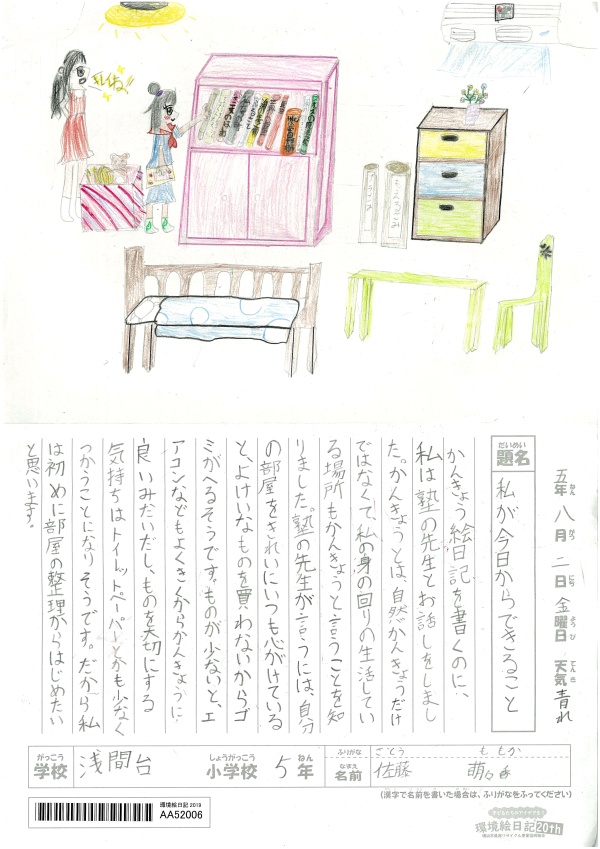 キレイね!!
もえるごみ
だいめい
題名
私が今日からできること
五年八月二日金曜日 天気 晴れ
ねん がつ にち ようび てんき
かんきょう絵日記を書くのに、
私は塾の先生とお話しをしまし
た。かんきょうとは、自然かんきょうだけ
ではなくて、私の身の回りの生活してい
る場所もかんきょうと言うことを知
りました。塾の先生が言うには、自分
の部屋をきれいにいつも心がけている
と、よけいなものを買わないからゴ
ミがへるそうです。ものが少ないと、エ
アコンなどもよくきくからかんきょうに
良いみたいだし、ものを大切にする
気持ちはトイレットペーパーとかも少なく
つかうことになりそうです。だから私
は初めに部屋の整理からはじめたい
と思います。
がっこう
学校
浅間台
しょうがっこう
小学校
5
ねん
年
ふりがな
さとう ももか
なまえ
名前
佐藤 萌々香
(漢字で名前を書いた場合は、ふりがなをふってください)
環境絵日記 2019
AA52006
環境絵日記 20th